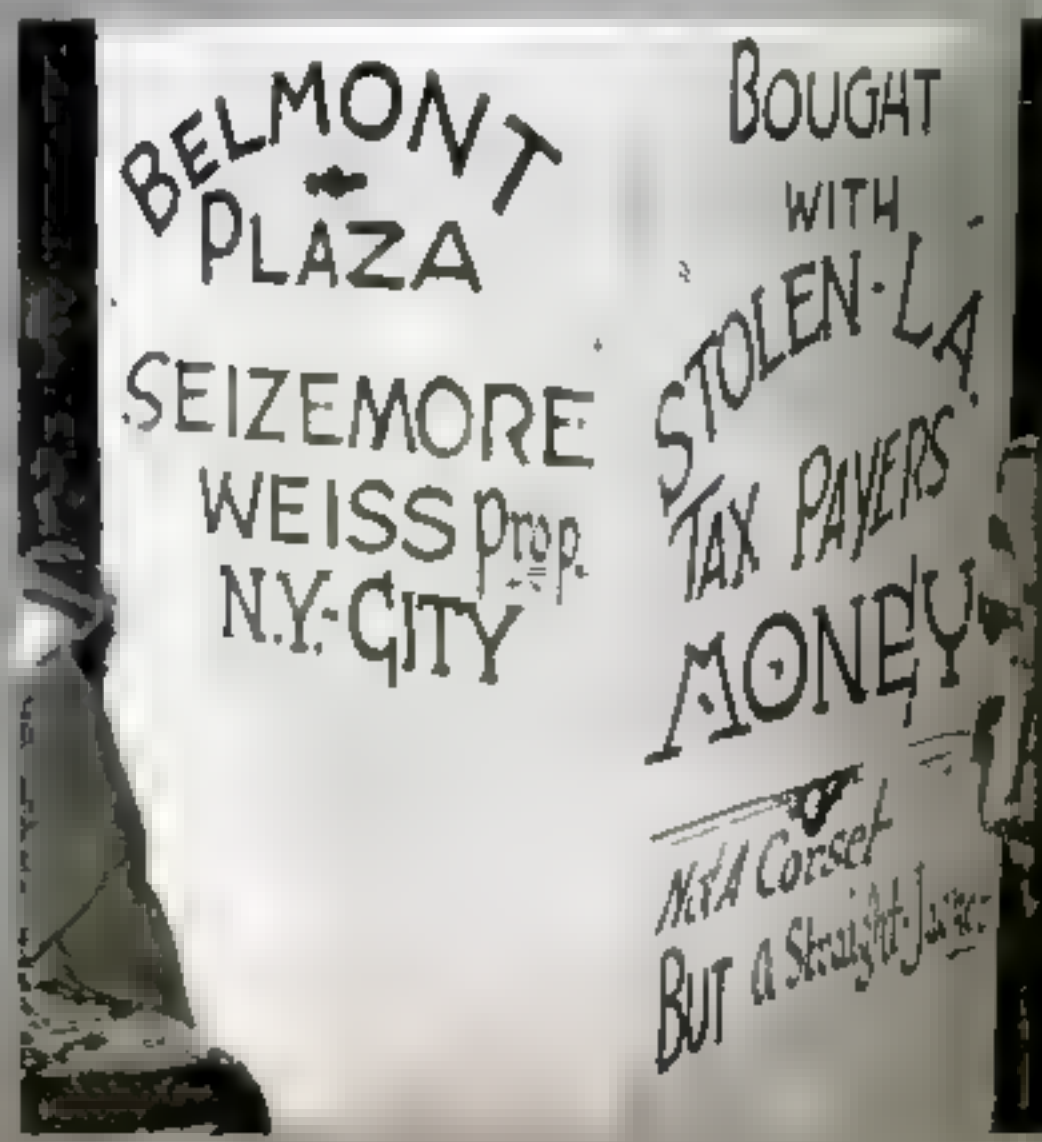 BELMONT
PLAZA
SEIZEMORE
WEISS Prop.
N.Y.-CITY
BOUGHT
WITH
STOLEN-LA.
TAX PAYERS
MONEY
Not A Corset
BUT a Straight-